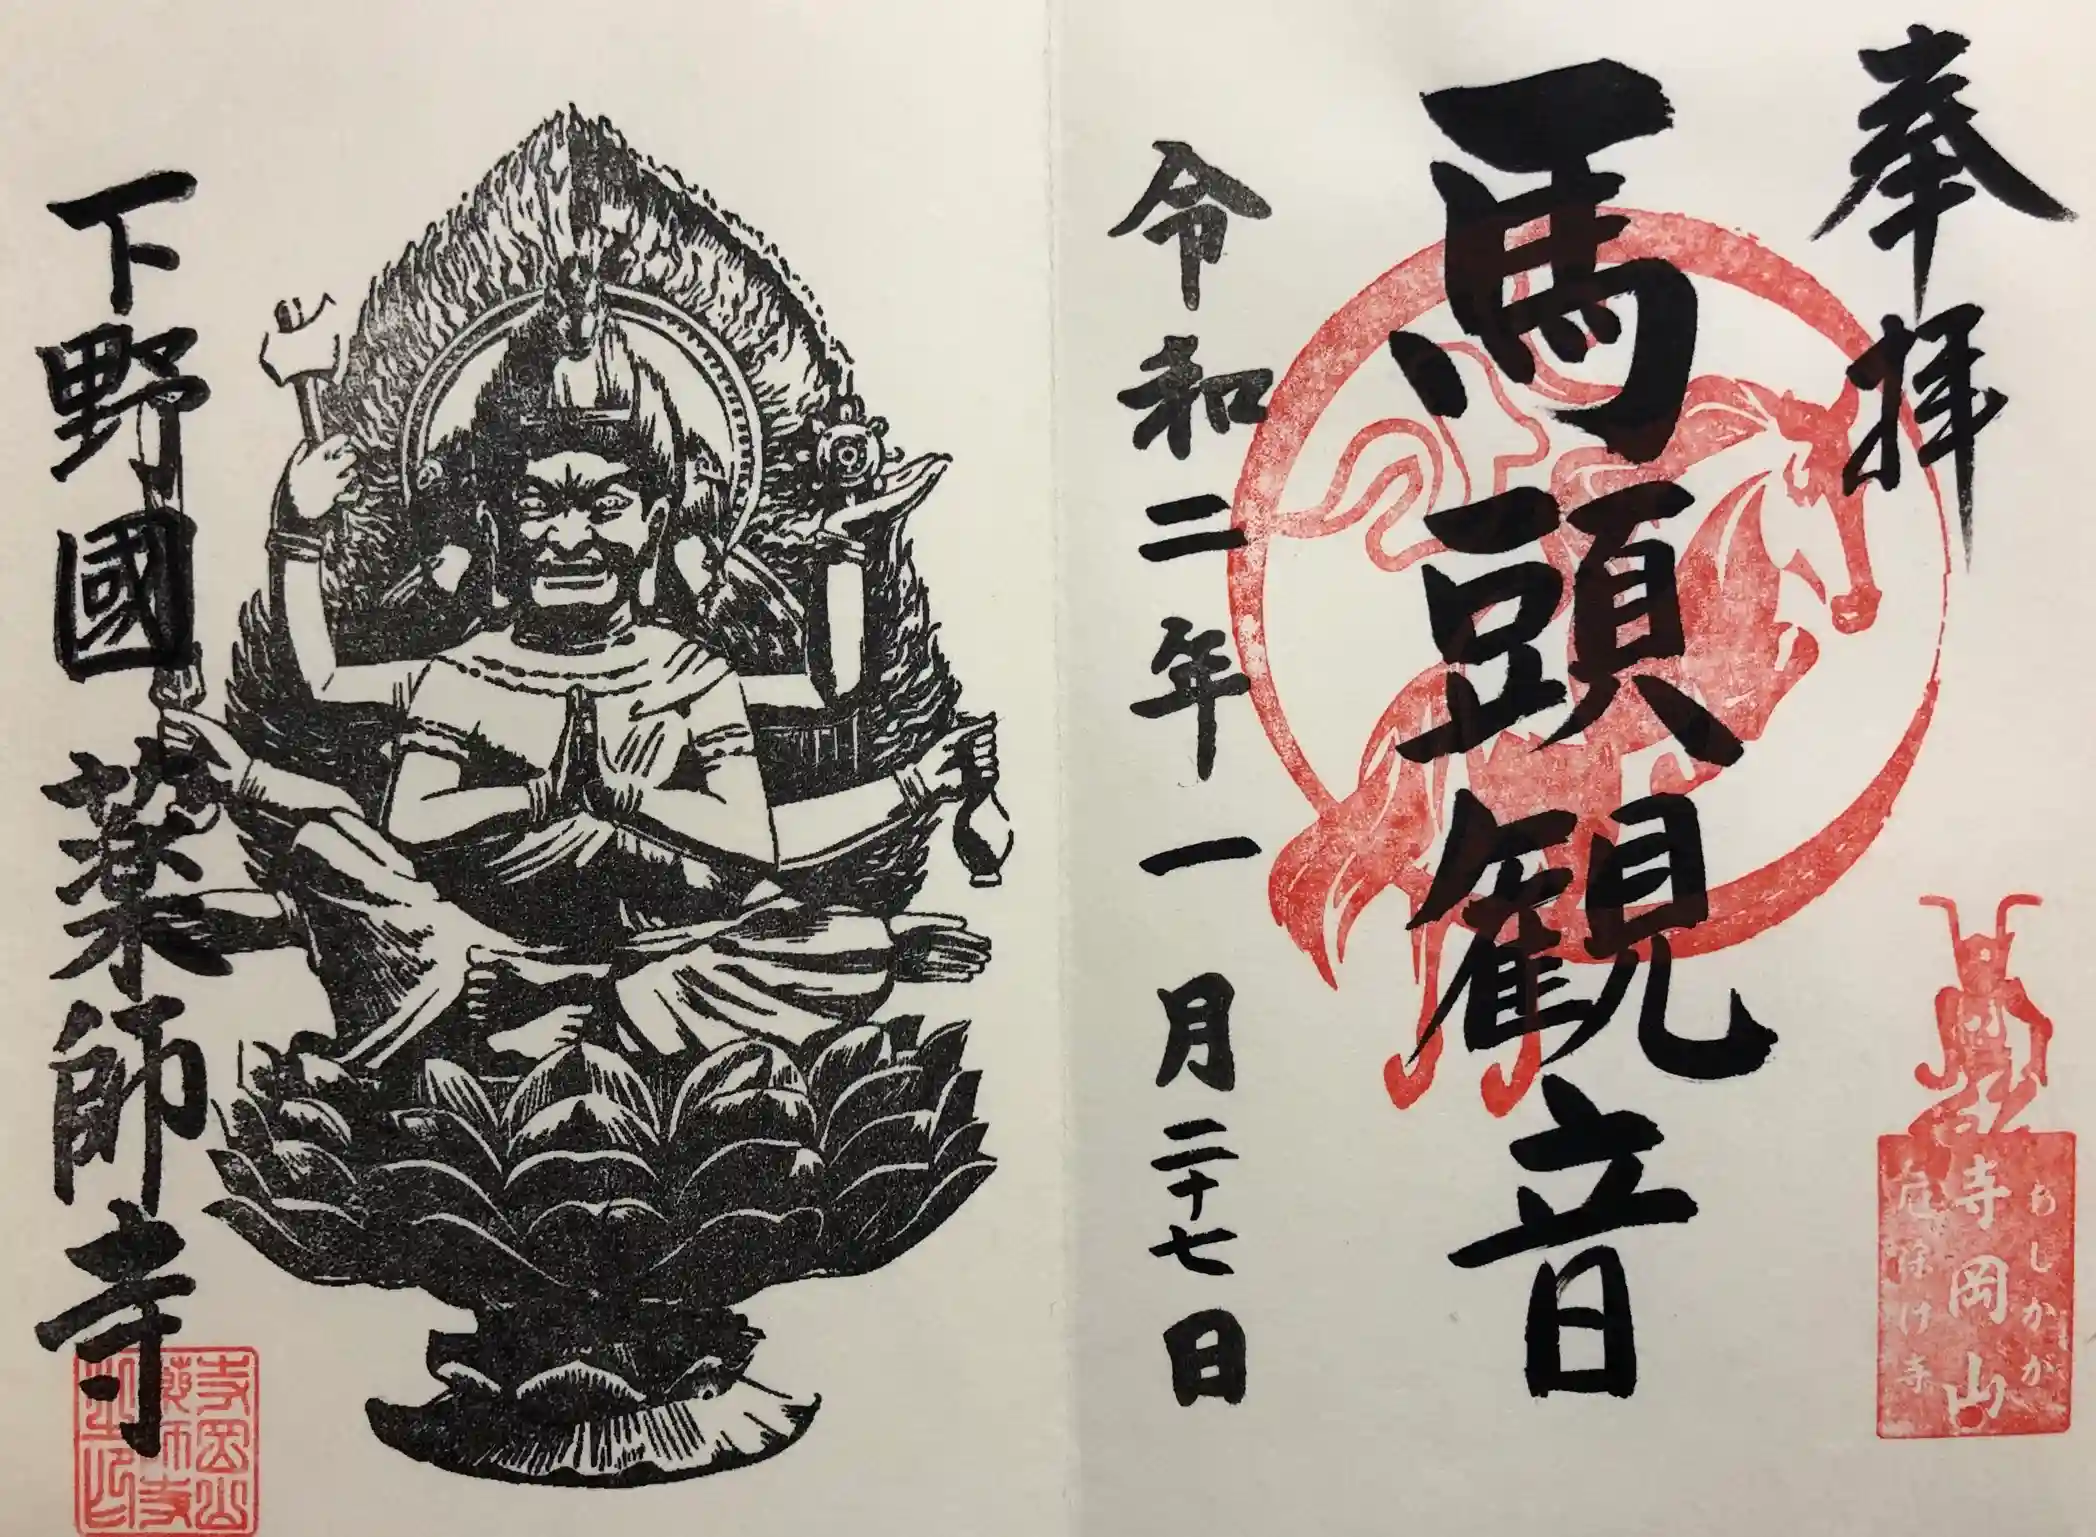 奉拝
馬頭観音
令和二年一月二十七日
あしかが
寺岡山
厄除け寺
下野國薬師寺
寺岡山
薬師寺